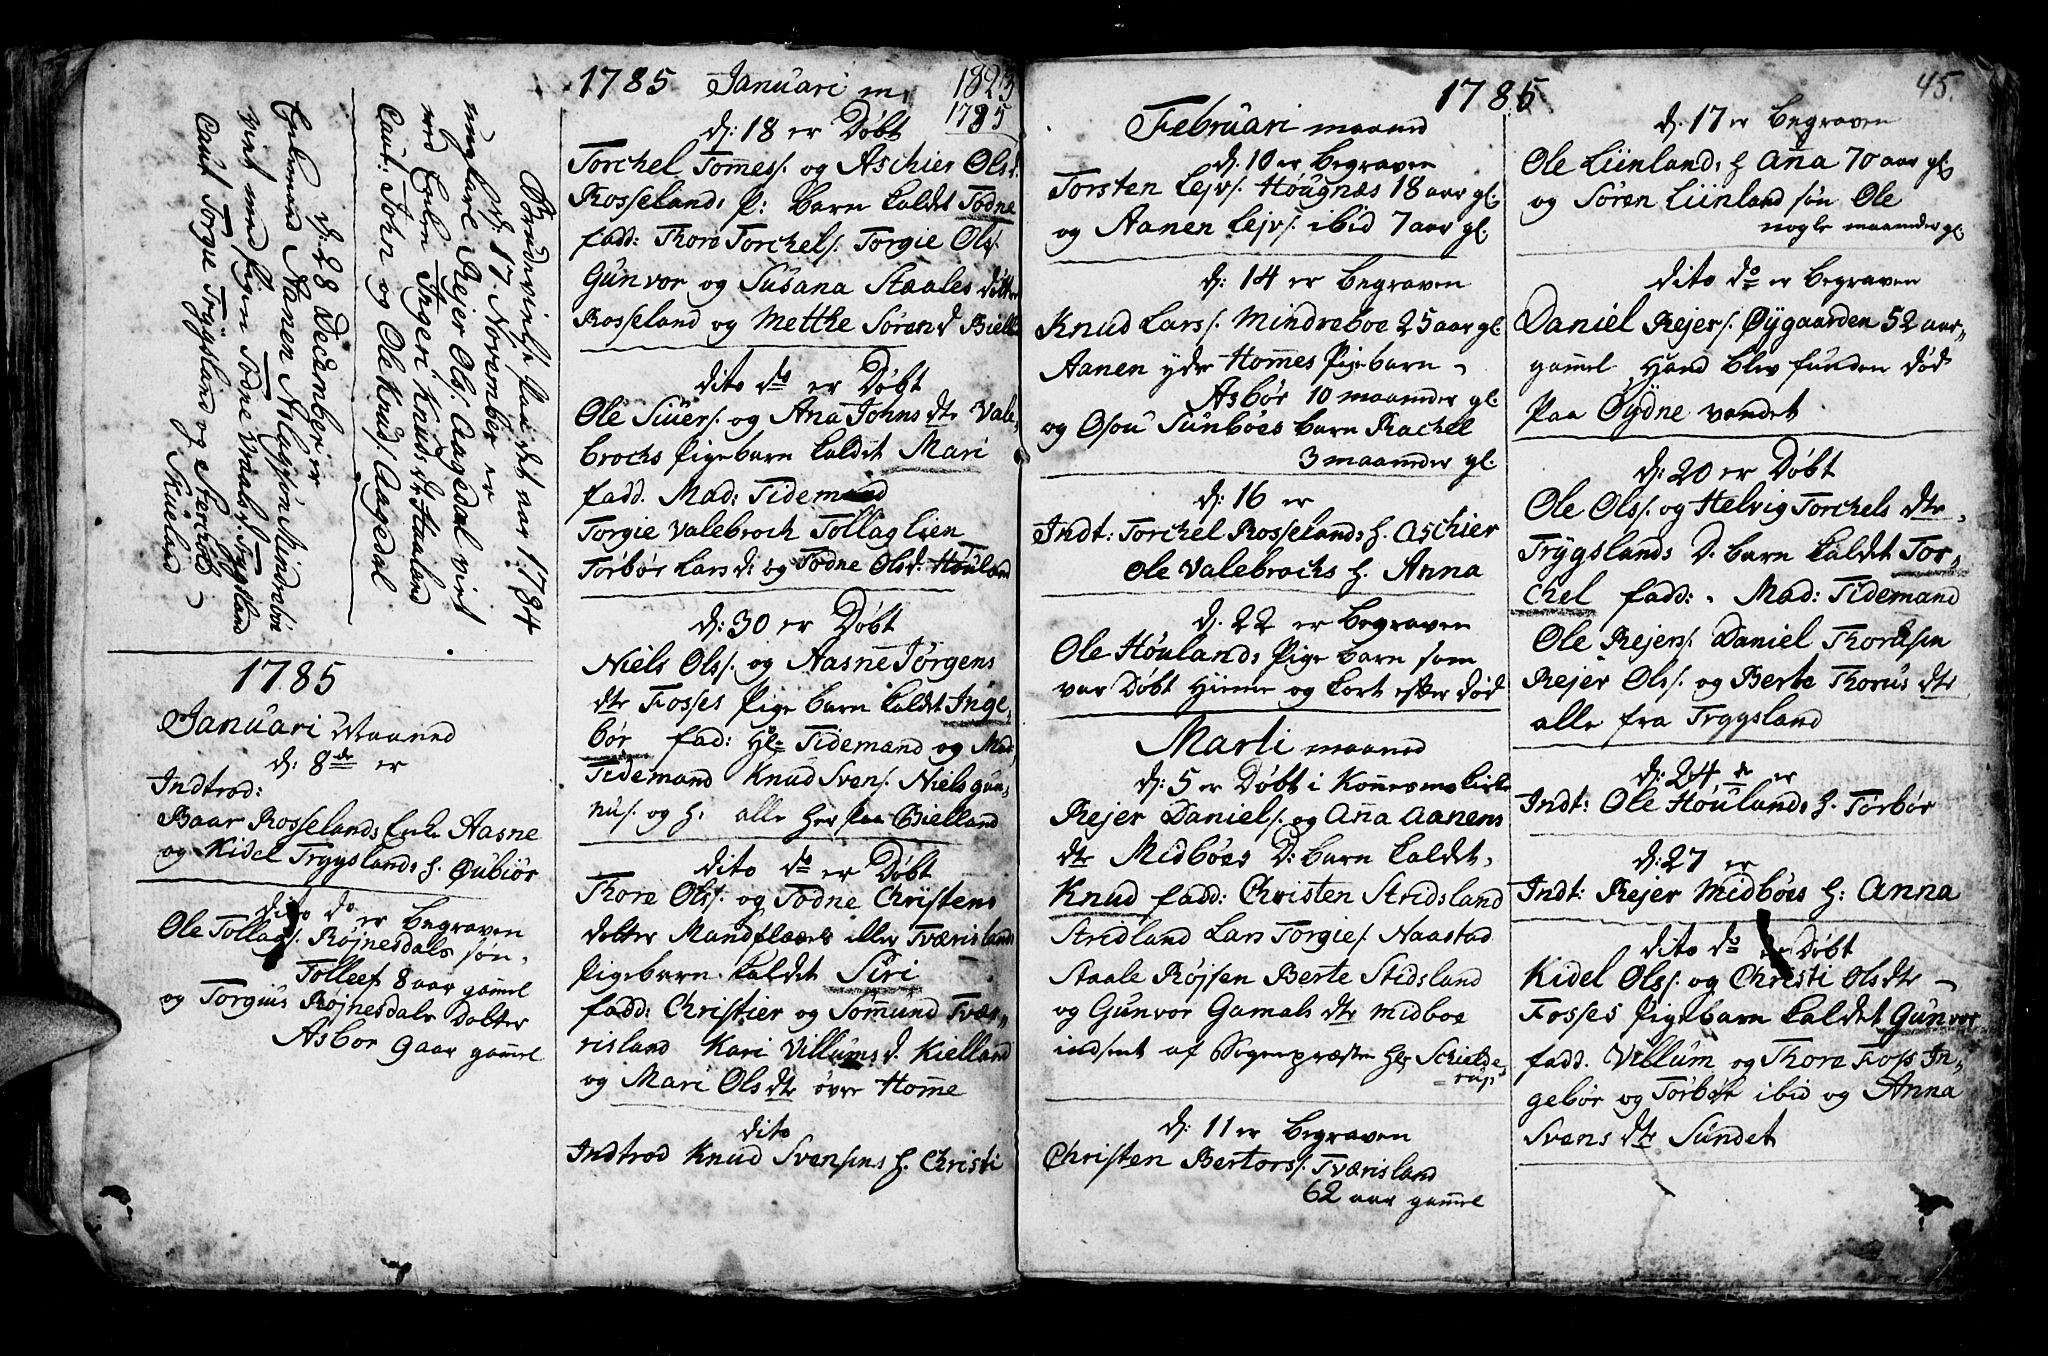 Brudevielse paa det aar 1784
d: 17 November er
ungkarl Rejer Ols. Aagedal viet
med Enken Ingeri Knuds dtr Haaland
Caut: John og Ole Knuds. Aagedal
d: 28 December er
Enkemand Aanen Mindreböe
viet med Pigen Todne Trygsland
Caut Torgie Trygsland og
Skueland
1785
Januari Maaned
d: 8de er
Indtrod:
Baar Rosselands Enke Aasne
og Kidel Trygslands h. Gubiör
dito do er begraven
Ole Tollags. Röjnesdals sön,
Tollef 8 aar gamel
og Torgius Röjnesdals dotter
Asbor 9 aar gamel
1785 Januari m, 1823
1785
d: 18 er Döbt
Torchel Tomes. og Aschier Ols d.
Rosselands P: barn kaldet Todne
fadd: Thore Torchels. Torgie Ols.
Gunvor og Susana Staales dötter
Rosseland og Methe Sören d Bielland
dito do er Döbt
Ole Siuers. og Ana Johns dtr Vale,
brochs Pigebarn kaldet Mari
fadd. Mad: Tidemand
Torgie Valebroch Tollag Lien
Torbör Lars d: og Todne Ols d: Höuland
d: 30 er Döbt
Niels Ols. og Aasne Jörgens
dtr Fosses Pige barn kaldet Inge,
bör fad: Hr Tidemand og Mad:
Tidemand Knud Svens. Niels Gun,
nus. og h. alle her paa Bielland
dito do er Döbt
Thore Ols. og Todne Christens
dotter Mandflaaes eller Tværisland
Pigebarn kaldet Siri
fadd: Christier og Sömund Tvæ,
risland Kari Villums d. Kielland
og Mari Ols dtr övre Home
dito
Indtrod Knud Svensens h. Christi
1785
45.
Februari maaned
d. 10 er begraven
Torsten Lejvs. Höugnæs 18 aar gl.
og Aanen Lejvs. ibid 7 aar gl.
d: 14 er begraven
Knud Lars. Mindreboe 25 aar gl
Aanen ydr Homes Pigebarn
Asbör 10 maaneder gl.
og Osou Sunböes barn Rachel
3 maaneder gl.
d: 16 er
Indt: Torchel Rosselands h. Aschier
Ole Valebrochs h. Anna
d. 22 er begraven
Ole Höulands Pige barn som
var Döbt hieme og kort efter död
Marti maaned
d: 5 er Döbt i Konnesmo kirke
Rejer Daniels. og Ana Aanens
dtr Midböes D: barn kaldet,
Knud fadd: Christen Stridsland
Stridland Lars Torgies. Naastad
Staale Röjsen Berte Stidsland
og Gunvor Gamals dtr Midboe
indsent af Sognepræsten Hr Schielde,
rup
d: 11 er begraven
Christen Bertors. Tværisland
62 aar gamel
d. 17 er begraven
Ole Liinlands h Ana 70 aar gl.
og Sören Liinland sön Ole
nogle maaneder gl.
dito do er begraven
Daniel Rejers. Öygaarden 52 aar
gamel Hand blev funden död
Paa Öydne vandet
d: 20 er Döbt
Ole Ols. og Helvig Torchels dtr,
Trygslands D. barn kaldet Tor,
chel fadd: Mad: Tidemand
Ole Rejers. Daniel Thorasen
Rejer Ols. og Berte Thorus dtr
alle fra Trygsland
d: 24 de er
Indt: Ole Höulands h. Torbör
d: 27 er
Indt: Rejer Midböes h: Anna
dito do er Döbt
Kidel Ols. og Christi Ols dtr
Fosses Pigebarn kaldet Gunvor
fadd. Villum og Thore Foss In,
gebör og Torbör ibid og Anna
Svens dtr Sundet